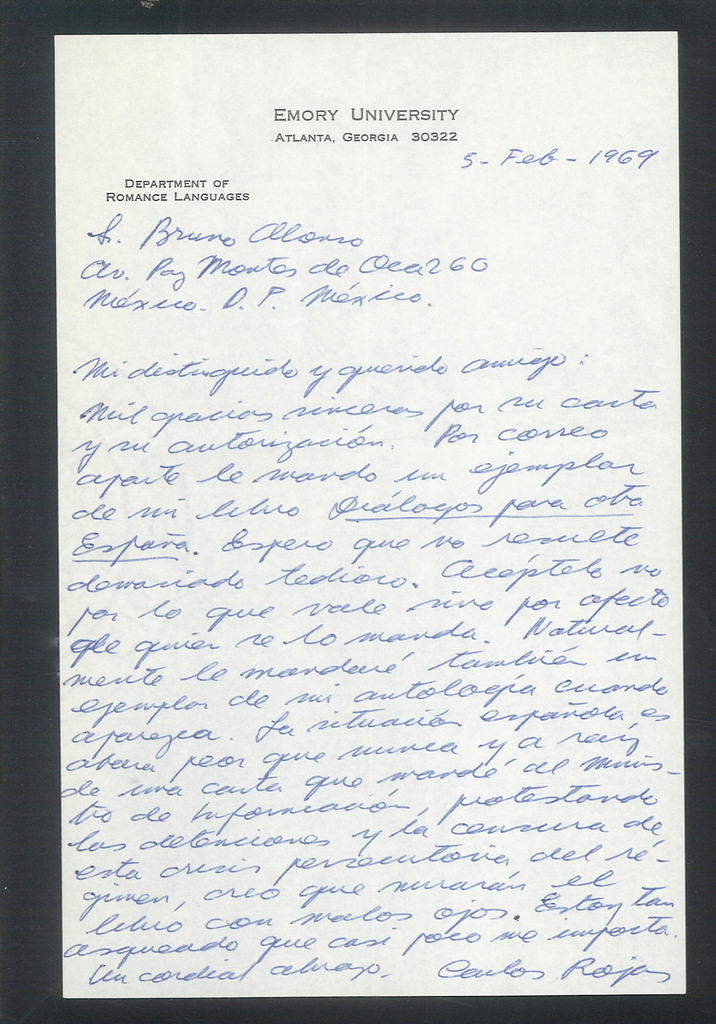 EMORY UNIVERSITY
ATLANTA, GEORGIA 30322
5- Feb - 1969
DEPARTMENT OF
ROMANCE LANGUAGES
Sr. Bruno Alonso
Av. Paz Montes de Oca 260
México. D. F. México.
Mi distinguido y querido amigo:
Mil gracias sinceras por su carta
y su autorización. Por correo
aparte le mando un ejemplar
de mi libro Diálogos para otra
España. Espero que no resulte
demasiado tedioso. Acéptelo no
por lo que vale sino por afecto
de quien se lo manda. Natural-
mente le mandaré también un
ejemplar de mi antología cuando
aparezca. La situación española es
ahora peor que nunca y a raíz
de una carta que mandé al Minis-
tro de Información, protestando
las detenciones y la censura de
esta crisis persecutoria del ré-
gimen, creo que mirarán el
libro con malos ojos. Estoy tan
asqueado que casi poco me importa.
Un cordial abrazo. Carlos Rojas